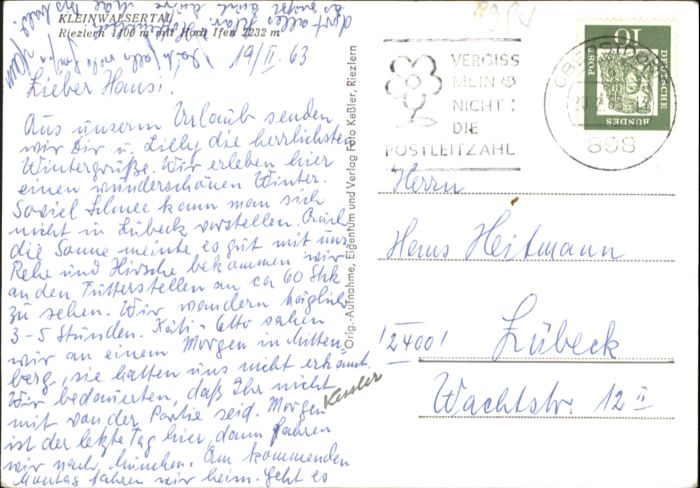 KLEINWALSERTAL
Riezlern 1100 m mit Hoch Ifen 2232 m
19/II. 63
Lieber Hans!
Aus unserm Urlaub senden
wir Dir u. Lilly die herrlichsten
Wintergrüße. Wir erleben hier
einen wunderschönen Winter.
Soviel Schnee kann man sich
nicht in Lübeck vorstellen. Auch
die Sonne meinte es gut mit uns
Rehe und Hirsche bekommen wir
an den Futterstellen an ca 60 Stk
zu sehen. Wir wandern täglich
3-5 Stunden. Käti - Otto sahen
wir an einem Morgen in Mittenberg,
sie hatten uns nicht erkannt.
Wir bedauerten, daß Ihr nicht
mit von der Partie seid. Morgen
ist der letzte Tag hier, dann fahren
wir nach München. Am kommenden
Montag fahren wir heim. Geht es
Kessler
Orig.-Aufnahme, Eigentum und Verlag Foto Keßler, Riezlern
VERGISS
MEIN
NICHT:
DIE
POSTLEITZAHL
898
10
DEUTSCHE
BUNDES
POST
Herrn
Hans Heitmann
2400 Lübeck
Wachtstr. 12 II